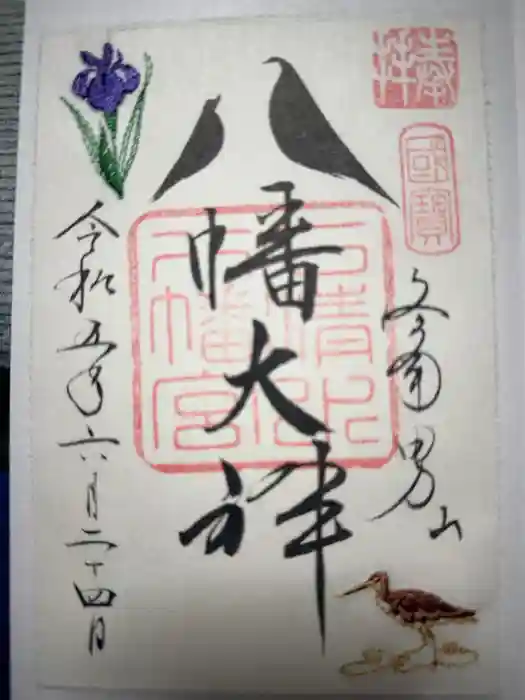 奉拝
國寶
やわた男山
八幡大神
石清水八幡宮
令和五年六月二十四日